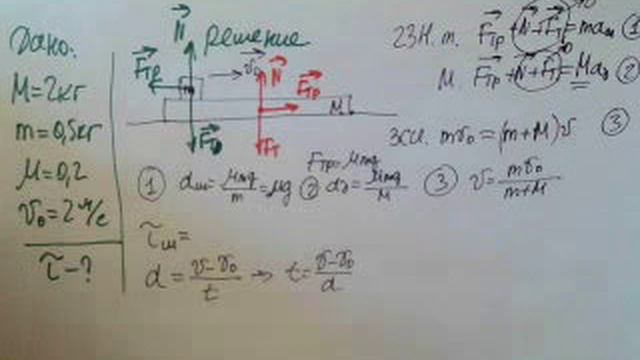 Дано:
M=2кг
m=0,5кг
μ=0,2
v₀=2м/с
τ-?
решение
N
Fтр
v₀
N
Fтр
M
Fт
Fт
2ЗН. m. Fтр+N+Fт=maш ①
M. Fтр+N+Fт=Maд ②
ЗСИ. mv₀=(m+M)v ③
Fтр=μmg
① aш=μmg/m=μg ② aд=μmg/M ③ v=mv₀/m+M
τш=
a=v-v₀/t → t=v-v₀/a